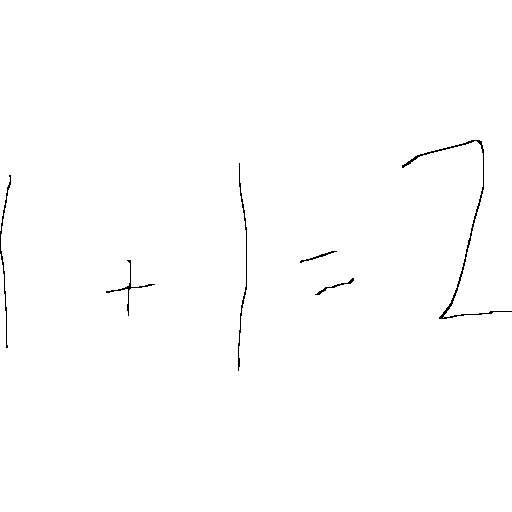 1 + 1 = 2